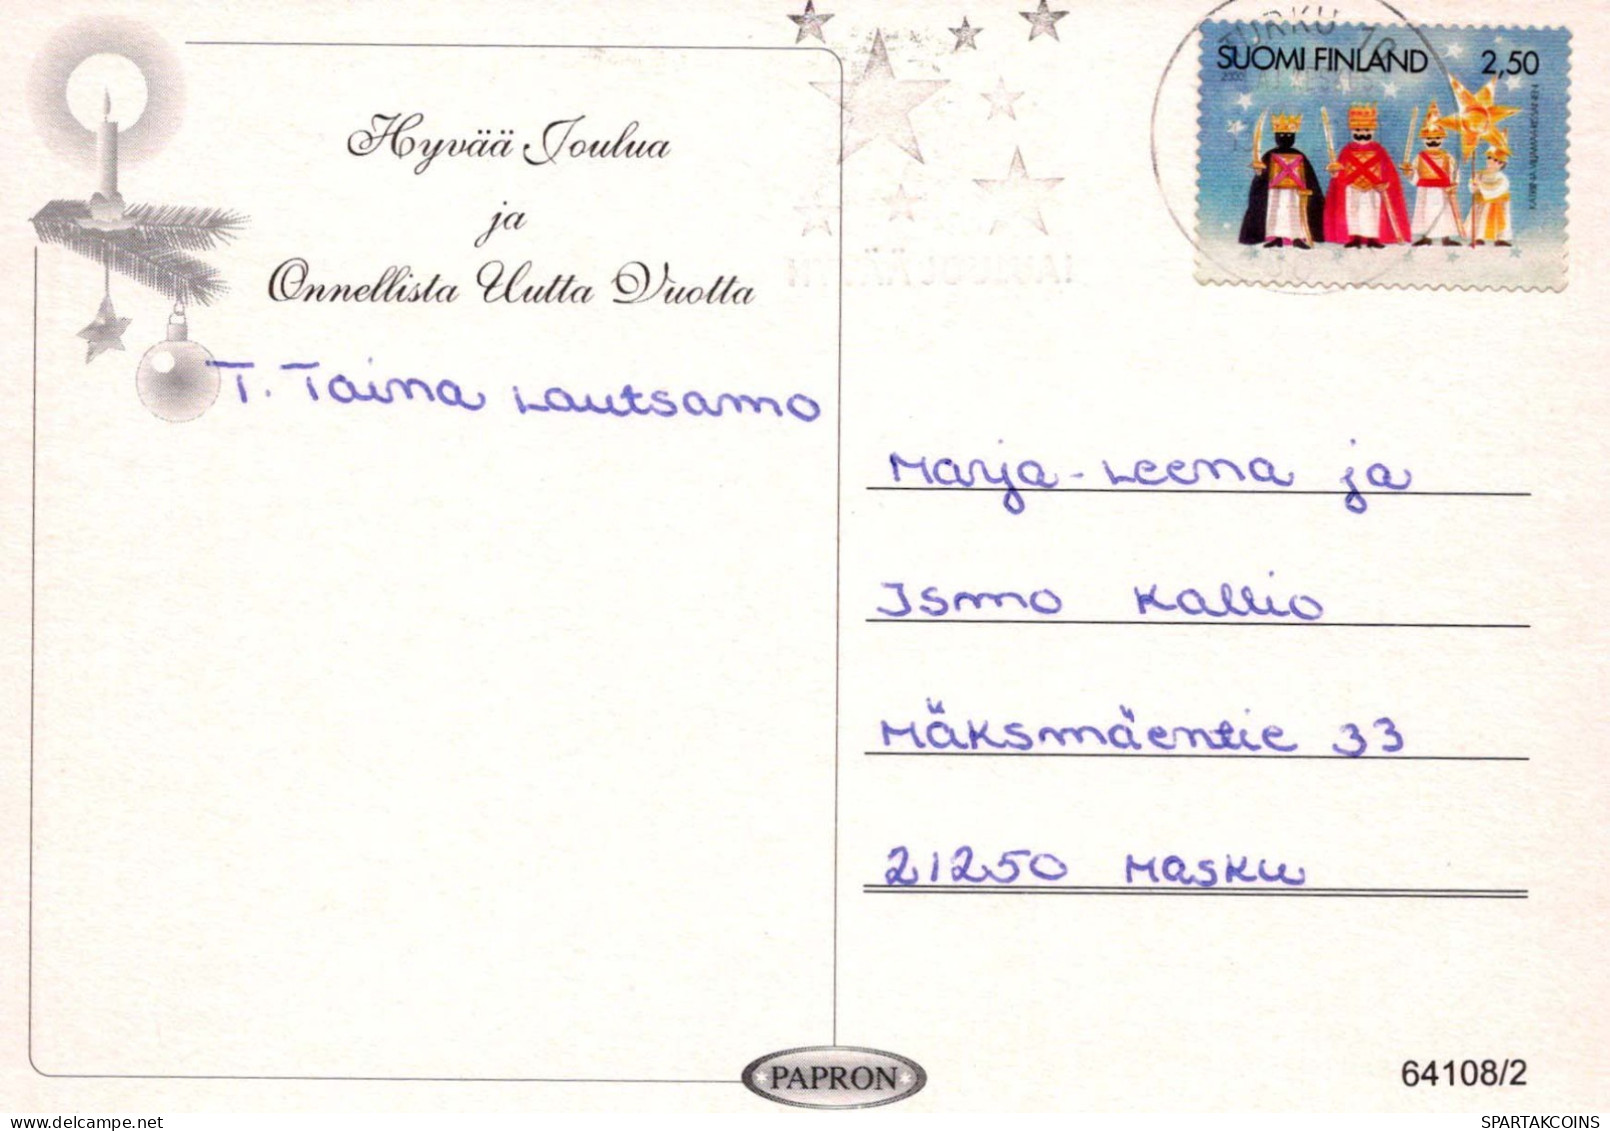 TURKU 10
SUOMI FINLAND 2,50
2000
Hyvää Joulua
ja
Onnellista Uutta Vuotta
T. Taina Lautsamo
Marja-Leena ja
Ismo Kallio
Mäksmäentie 33
21250 Masku
PAPRON
64108/2
SPARTAKCOINS